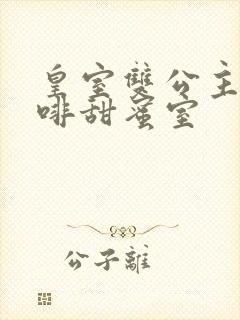 皇室雙公主
啡甜蜜室
公子離